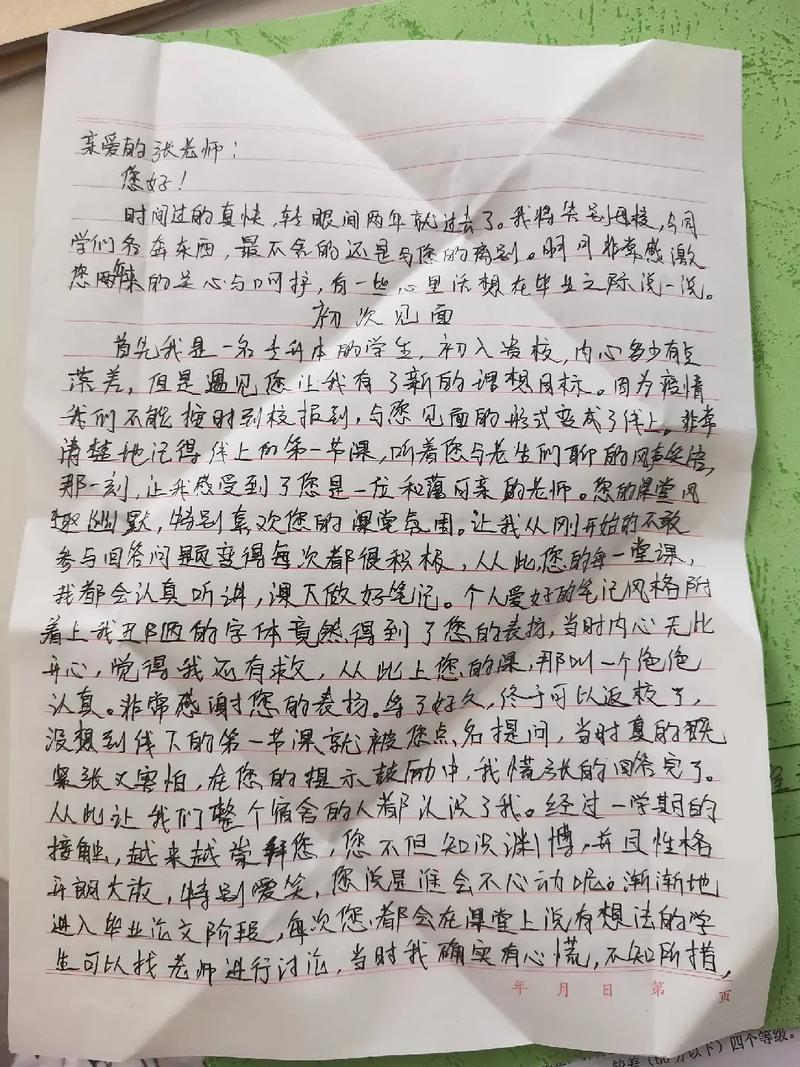 亲爱的张老师：
您好！
时间过的真快，转眼间两年就过去了。我将告别母校，与同
学们各奔东西，最不舍的还是与您的离别。同时非常感激
您两年来的关心与呵护，有一些心里话想在毕业之际说一说。
初次见面
首先我是一名专升本的学生，初入贵校，内心多少有点
落差，但是遇见您让我有了新的理想目标。因为疫情
我们不能按时到校报到，与您见面的形式变成了线上。非常
清楚地记得线上的第一节课，听着您与老生们聊的风声笑语，
那一刻，让我感受到了您是一位和蔼可亲的老师。您的课堂风
趣幽默，特别喜欢您的课堂氛围。让我从刚开始的不敢
参与回答问题变得每次都很积极，从此，您的每一堂课，
我都会认真听讲，课下做好笔记。个人爱好的笔记风格附
着上我丑陋的字体竟然得到了您的表扬，当时内心无比
开心，觉得我还有救，从此上您的课，那叫一个绝绝
认真。非常感谢您的表扬。等了好久，终于可以返校了，
没想到线下的第一节课就被您点名提问，当时真的既
紧张又害怕，在您的提示鼓励中，我慌张的回答完了。
从此让我们整个宿舍的人都认识了我。经过一学期的
接触，越来越崇拜您，您不但知识渊博，并且性格
开朗大政，特别爱笑，您说是谁会不心动呢。渐渐地
进入毕业论文阶段，每次您都会在课堂上说有想法的学
生可以找老师进行讨论，当时我确实有心慌，不知所措，
年 月 日 第 页
以下）四个等级。